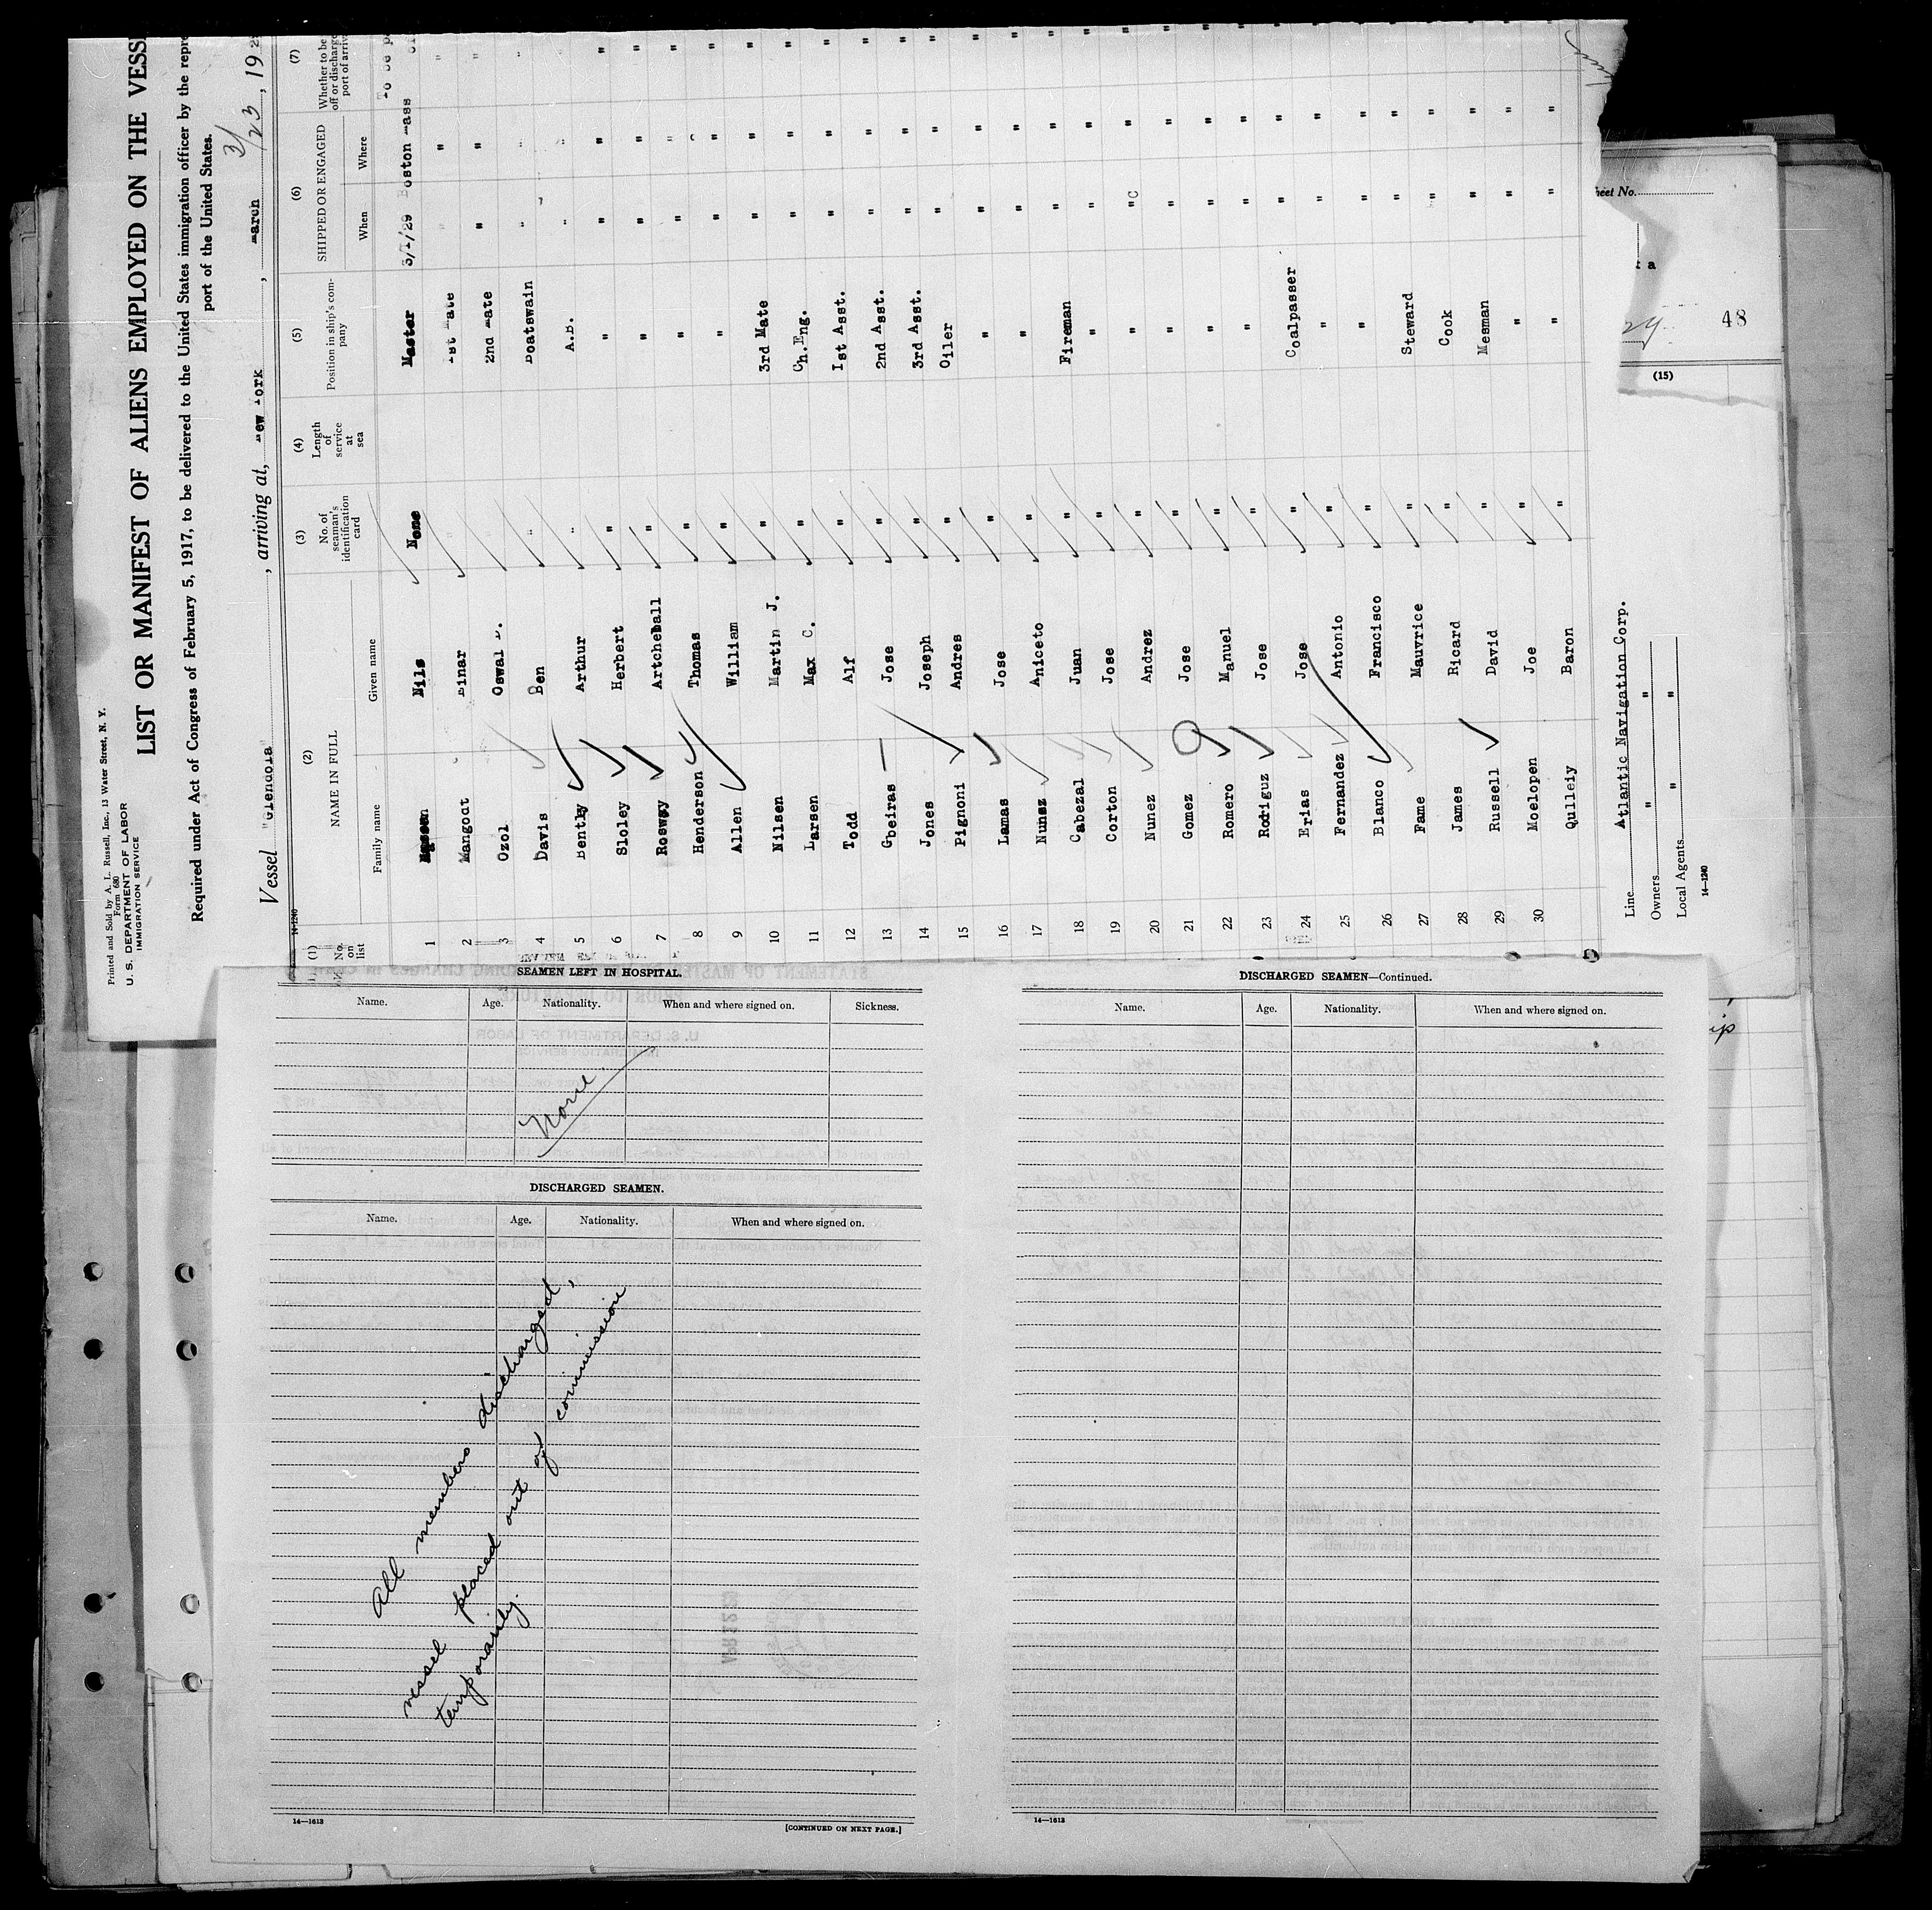 Printed and Sold by A. L. Russell, Inc., 13 Water Street, N. Y.
Form 680
U. S. DEPARTMENT OF LABOR
IMMIGRATION SERVICE
LIST OR MANIFEST OF ALIENS EMPLOYED ON THE VESSE
Required under Act of Congress of February 5, 1917, to be delivered to the United States immigration officer by the repre
port of the United States.
Vessel "Glendola", arriving at, New York, March 3/23, 192
(1) (2) (3) (4) (5) (6) (7)
No. on list NAME IN FULL No. of seaman's identification card Length of service at sea Position in ship's company SHIPPED OR ENGAGED Whether to be off or discharge port of arriv
Family name Given name When Where
1 Nils None Master 3/1/29 Boston Mass To be p
2 Mangoct Einar 1st Mate " "
3 Ozol Oswal D. 2nd Mate " " "
4 Davis Ben " Boatswain " " "
5 Bently Arthur " A.B. " "
6 Sloley Herbert " " " " "
7 Roswgy Artcheball " " " " "
8 Henderson Thomas " " " "
9 Allen William " " " " "
10 Nilsen Martin J. " 3rd Mate " " "
11 Larsen Max C. " Ch.Eng. " " "
12 Todd Alf " 1st Asst. " " "
13 Gbeiras Jose " 2nd Asst. " " "
14 Jones Joseph " 3rd Asst. " " "
15 Pignoni Andres " Oiler " " "
16 Lamas Jose " " " " "
17 Nunez Aniceto " " " " "
18 Cabezal Juan " Fireman " " "
19 Corton Jose " " " " "
20 Nunez Andrez " " " " "
21 Gomez Jose " " " " "
22 Romero Manuel " " " " "
23 Rodriguz Jose " " " " "
24 Erias Jose " Coalpasser " " "
25 Fernandez Antonio " " " " "
26 Blanco Francisco " " " " "
27 Fame Mauvrice " Steward " " "
28 James Ricard " Cook " " "
29 Russell David " Mesman " " "
30 Moelopen Joe " " " " "
Qulleiy Baron " " " " "
Line Atlantic Navigation Corp.
Owners " "
Local Agents " "
14-1240
heet No.
48
(15)
ip
SEAMEN LEFT IN HOSPITAL.
Name. Age. Nationality. When and where signed on. Sickness.
None
DISCHARGED SEAMEN.
Name. Age. Nationality. When and where signed on.
All members discharged,
vessel placed out of commission
temporarily.
14—1613
[CONTINUED ON NEXT PAGE.]
DISCHARGED SEAMEN—Continued.
Name. Age. Nationality. When and where signed on.
14—1613